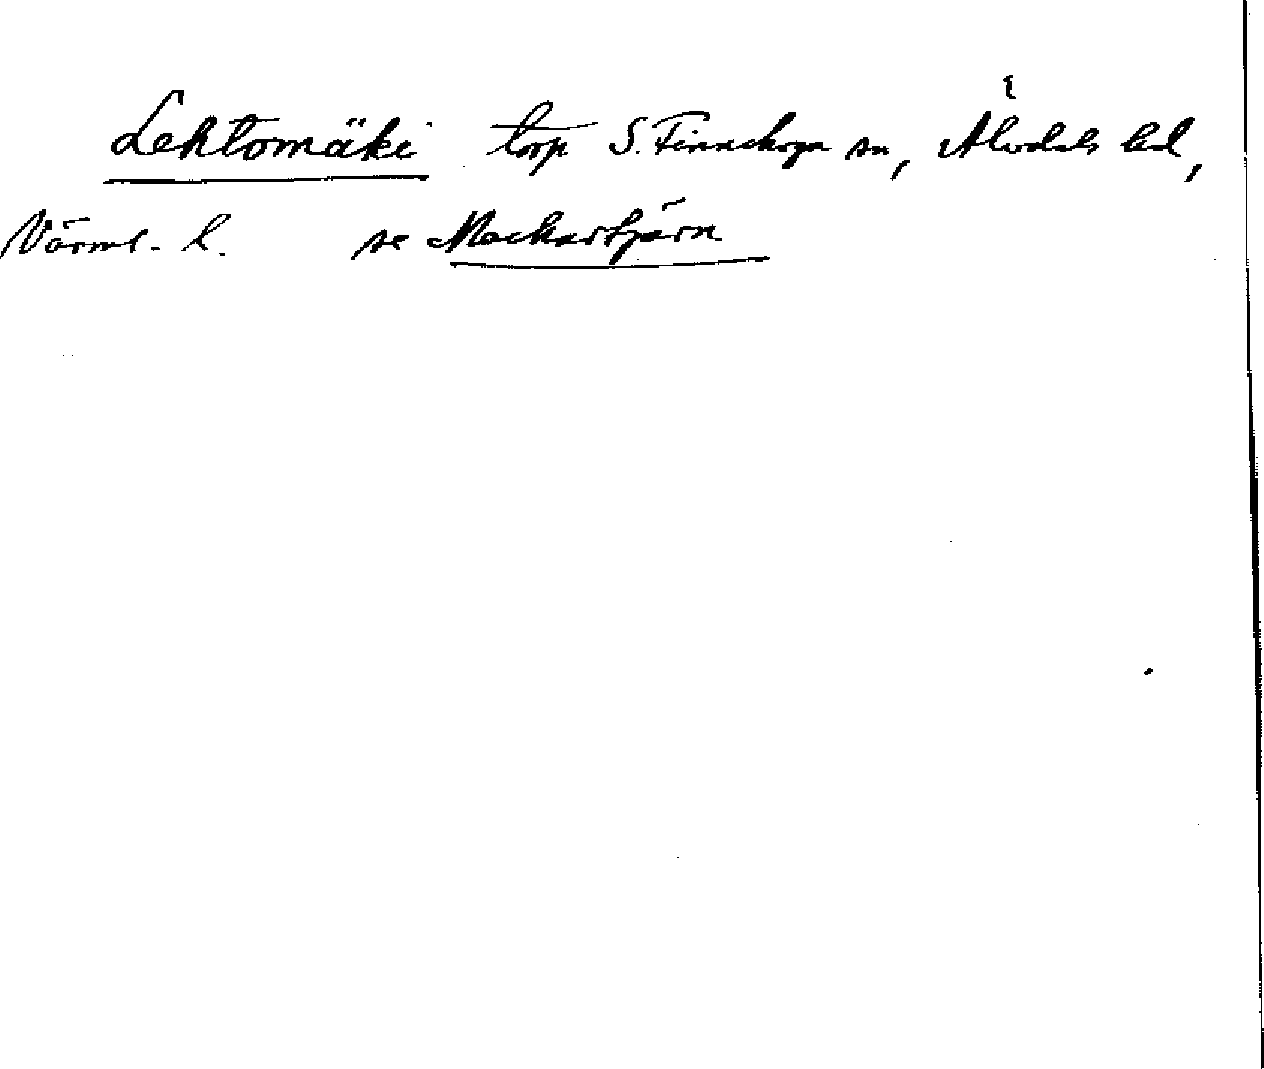 Lehtomäki torp S. Finnskoga sn, Älvdals hd,
Värml. l. se Mackartjärn